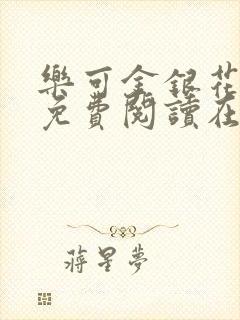 樂可金銀花
免費閱讀在
蔣星夢